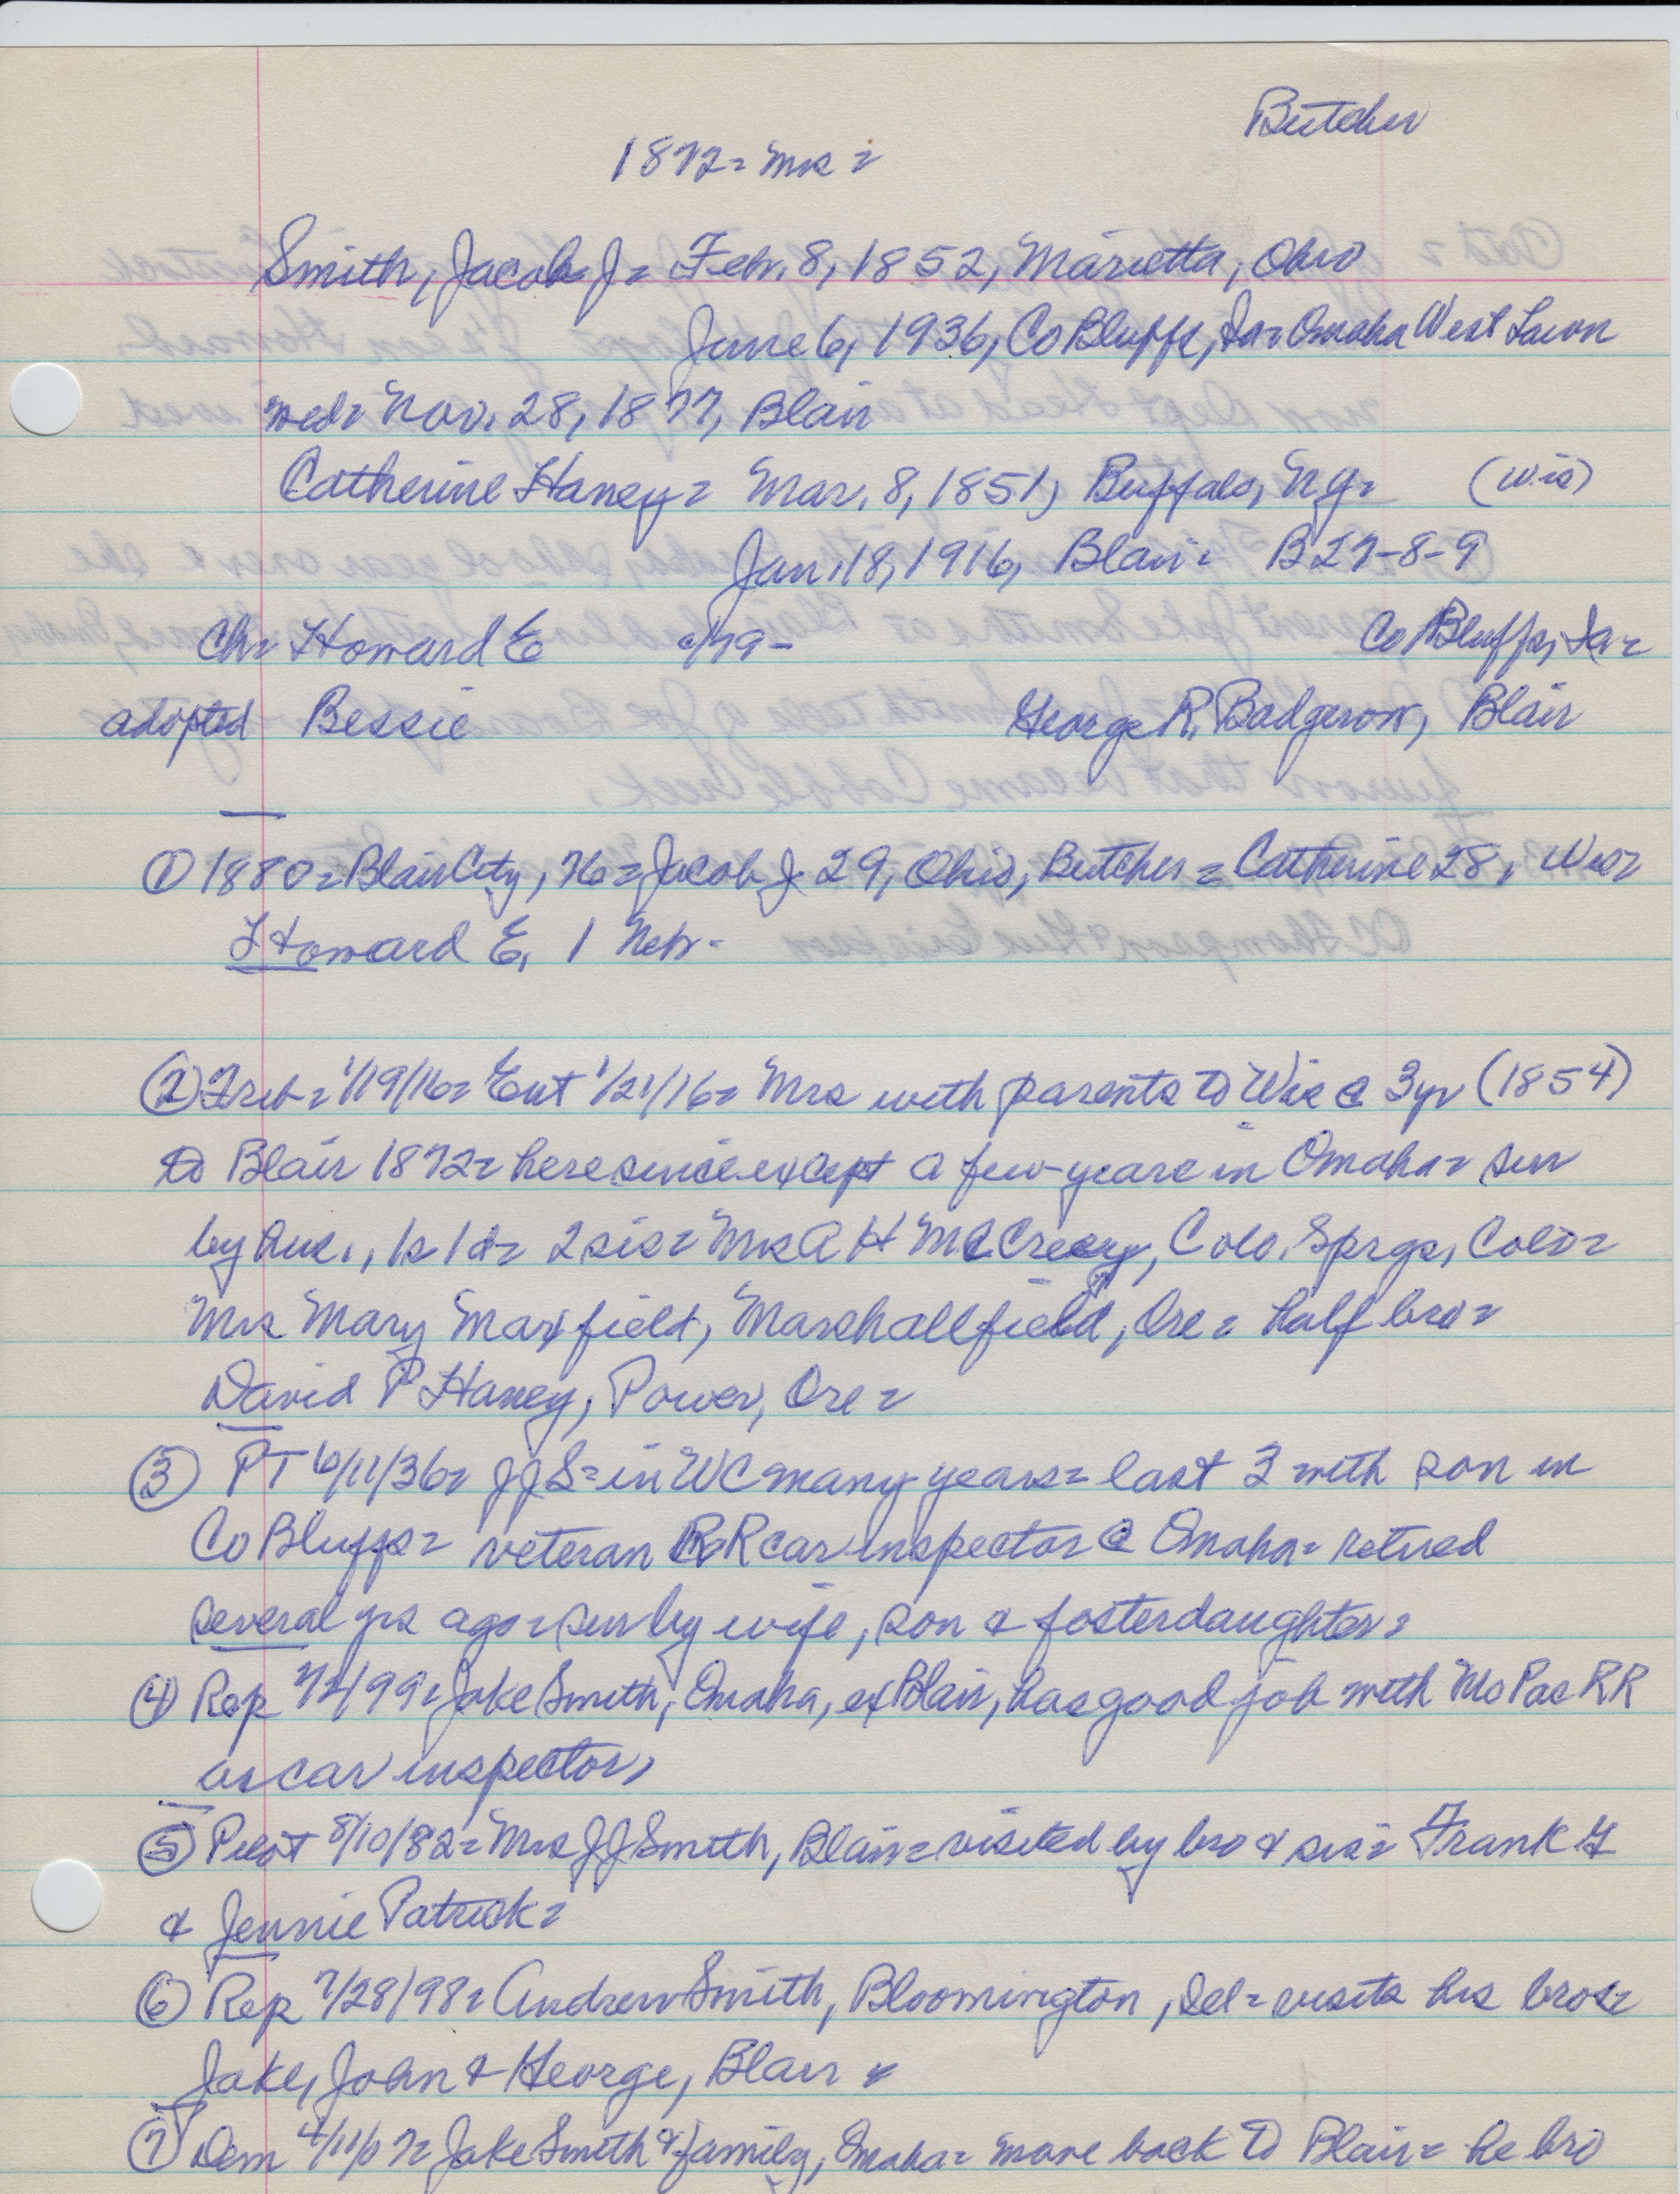 Butcher
1872= Mrs =
Smith, Jacob J= Feb. 8, 1852, Marietta, Ohio
June 6, 1936, Co Bluffs, Ia= Omaha West Lawn
wed= Nov. 28, 1877, Blair
Catherine Haney= Mar. 8, 1851, Buffalo, Ny= (Wis)
Jan. 18, 1916, Blair= B27-8-9
Ch= Howard E c/79- Co Bluffs, Ia=
adopted Bessie George R. Badgerow, Blair
① 1880= Blair City, 76= Jacob J 29, Ohio, Butcher= Catherine 28, Wis=
Howard E, 1 Nebr-
② Trib= 1/19/16= Ent 1/21/16= Mrs with parents to Wis @ 3yr (1854)
to Blair 1872= here since except a few years in Omaha= sur
by hus., 1s 1d= 2 sis= Mrs A H McCreary, Colo. Sprgs, Colo=
Mrs Mary Maxfield, Marshallfield, Ore= half bro=
David P Haney, Power, Ore=
③ PT 6/11/36= JJS= in WC many years= last 3 with son in
Co Bluffs= veteran RR car inspector @ Omaha= retired
several yrs ago= sur by wife, son & fosterdaughter=
④ Rep 7/4/99= Jake Smith, Omaha, ex Blair, has good job with Mo Pac RR
as car inspector,
⑤ Pilot 8/10/82= Mrs JJ Smith, Blair= visited by bro & sis= Frank H
& Jennie Patrick=
⑥ Rep 7/28/98= Andrew Smith, Bloomington, Ill= visits his bros=
Jake, John & George, Blair
⑦ Dem 4/11/07= Jake Smith & family, Omaha= move back to Blair= he bro